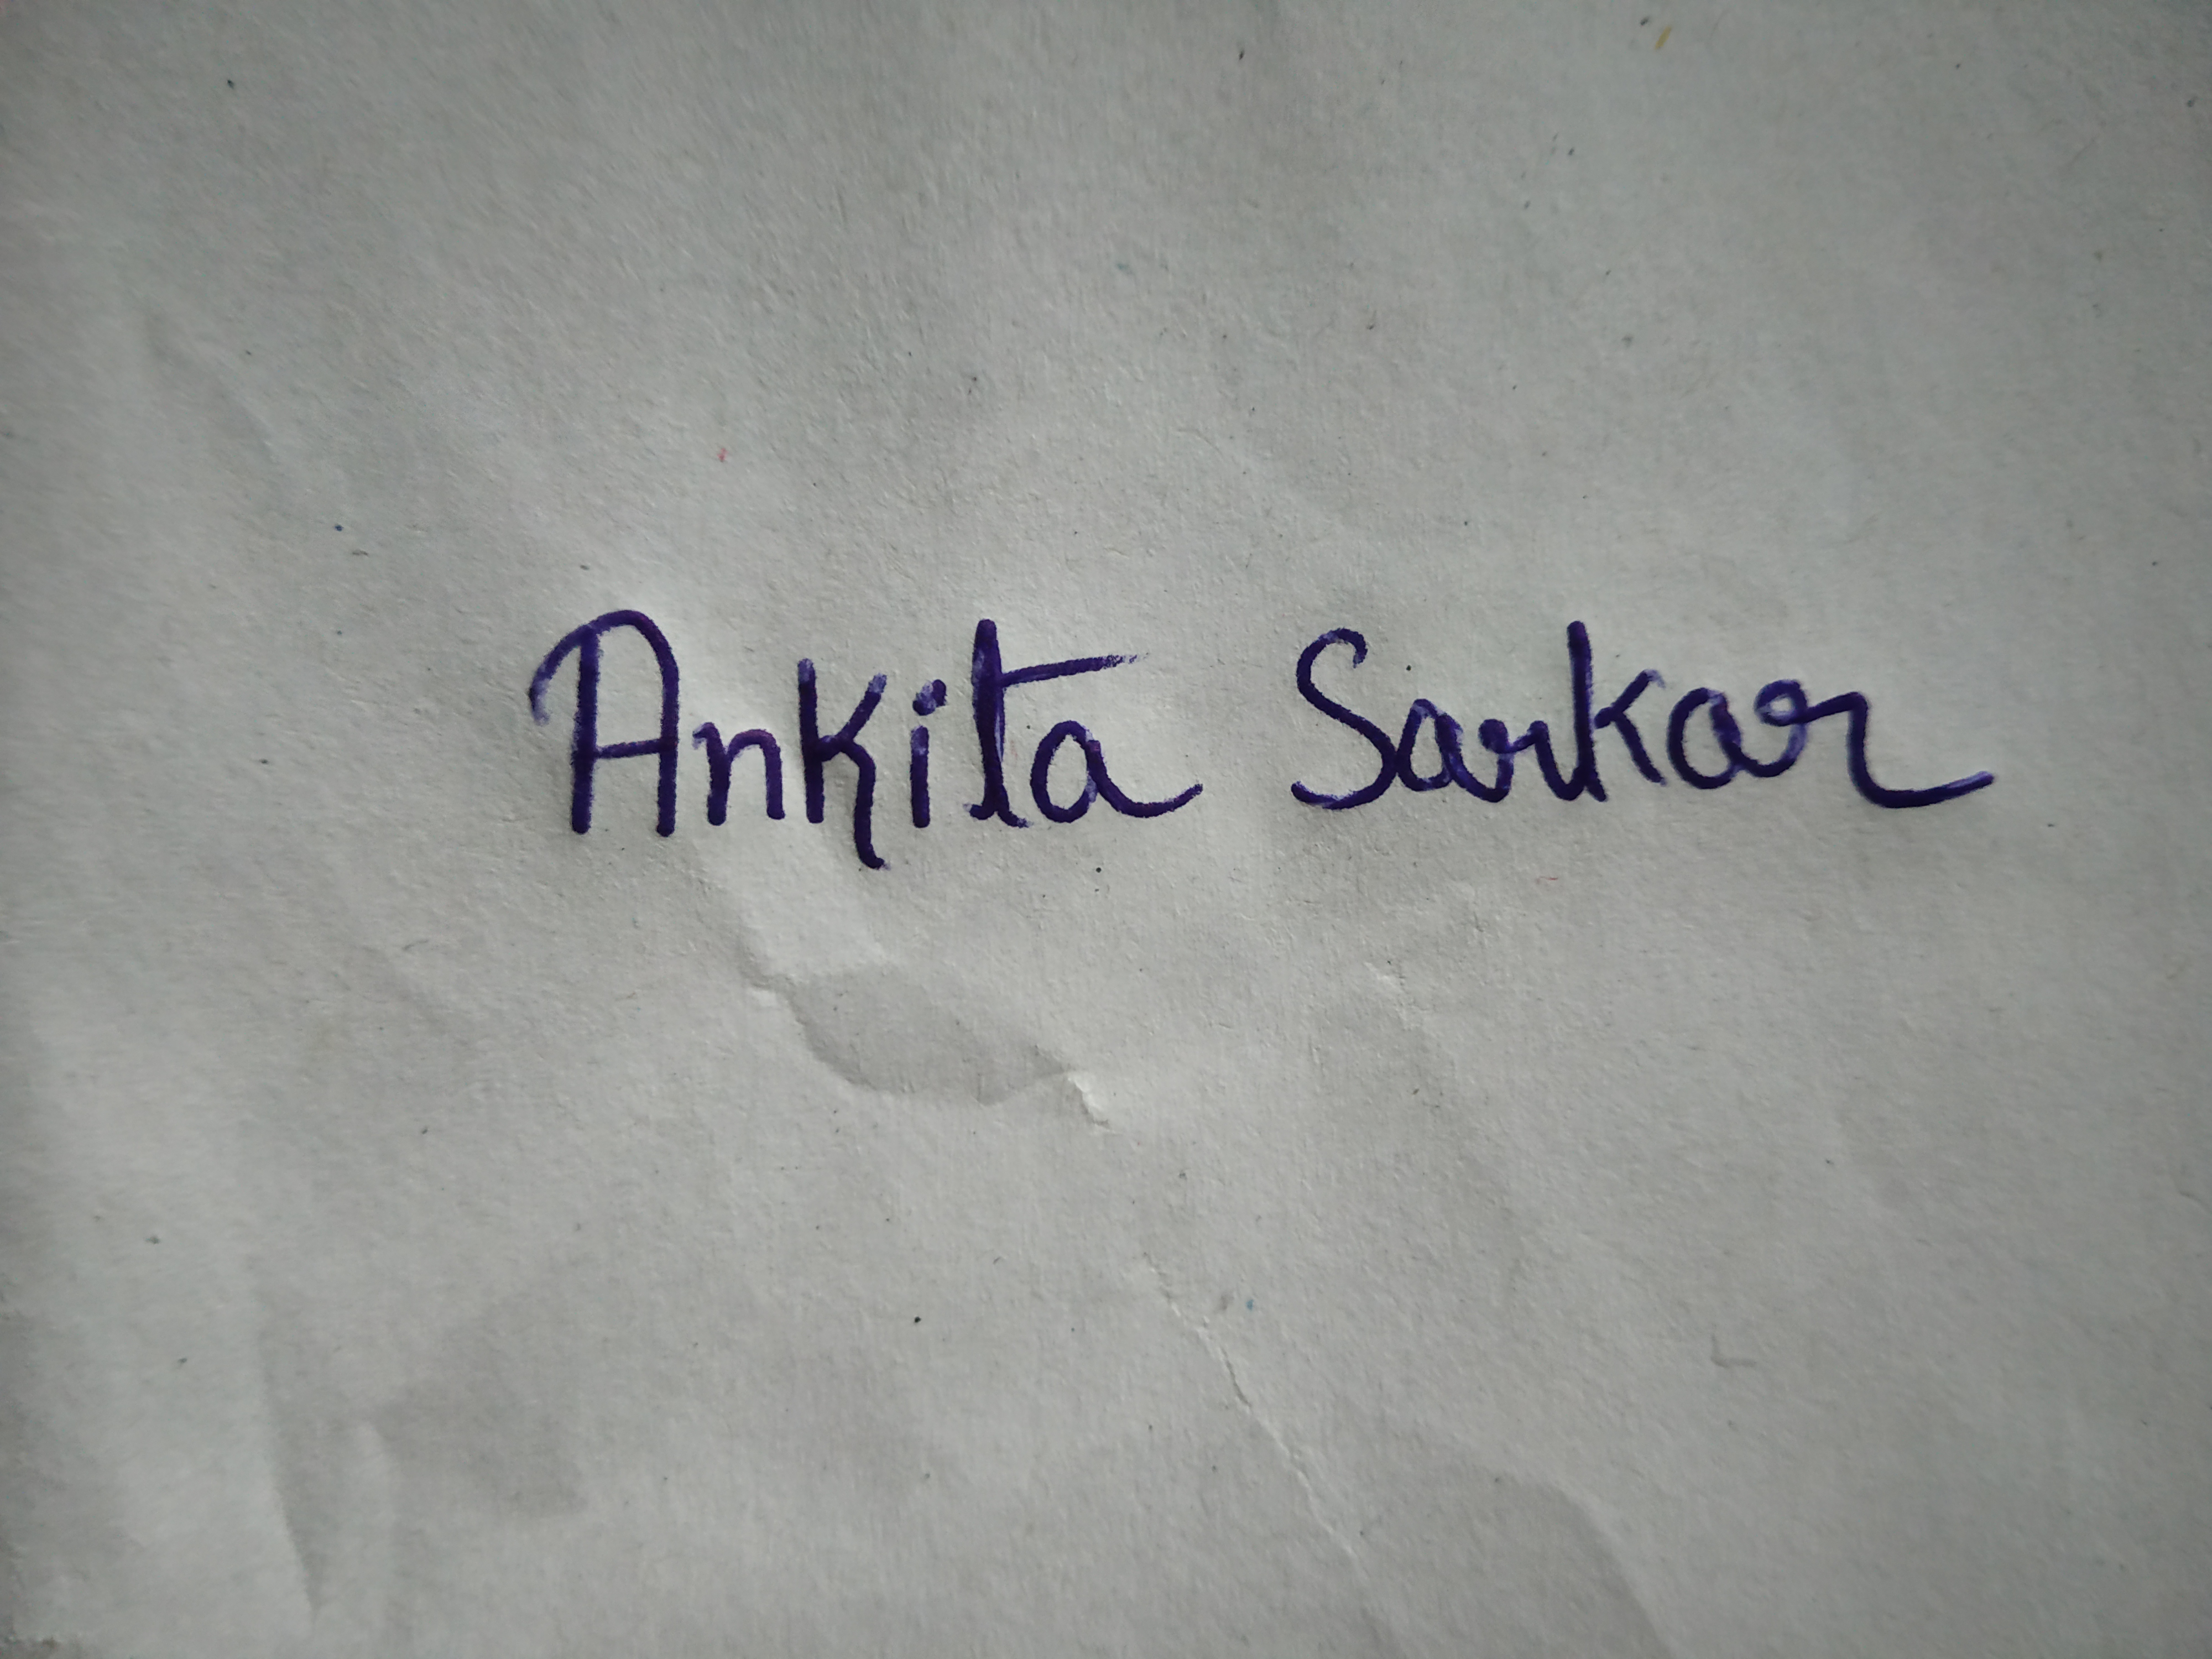 Ankita Sarkar